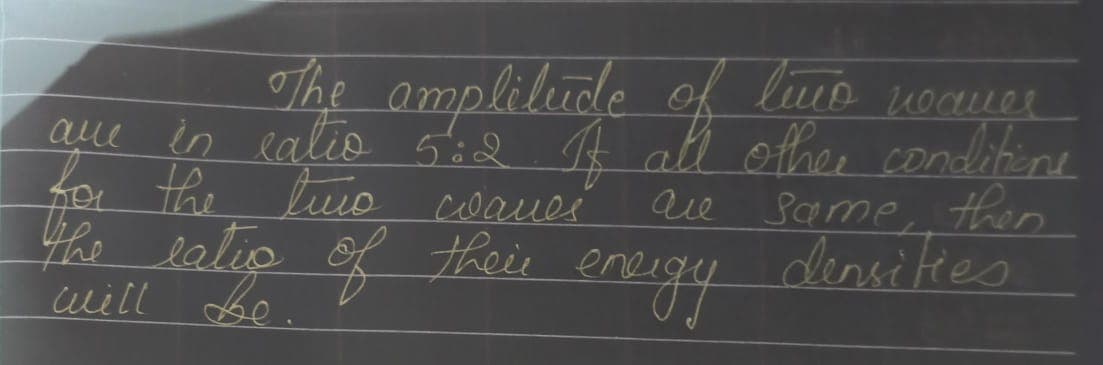 The amplitude of two waves
are in ratio 5:2. If all other conditions
for the two waves are same, then
the ratio of their energy densities
will be.